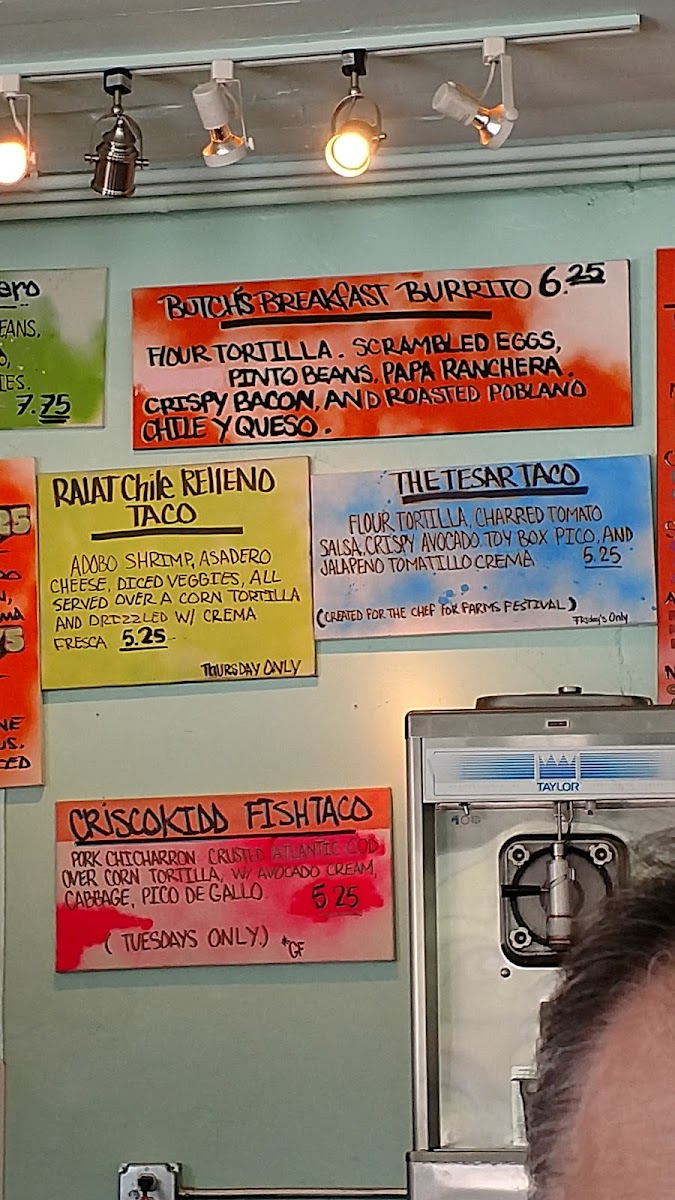 EANS,
7.75
BUTCH'S BREAKFAST BURRITO 6.25
FLOUR TORTILLA. SCRAMBLED EGGS,
PINTO BEANS, PAPA RANCHERA.
CRISPY BACON, AND ROASTED POBLANO
CHILE Y QUESO.
RALAT Chile RELLENO
TACO
ADOBO SHRIMP, ASADERO
CHEESE, DICED VEGGIES, ALL
SERVED OVER A CORN TORTILLA
AND DRIZZLED W/ CREMA
FRESCA 5.25
THURSDAY ONLY
THE TESAR TACO
FLOUR TORTILLA, CHARRED TOMATO
SALSA, CRISPY AVOCADO, TOY BOX PICO, AND
JALAPENO TOMATILLO CREMA 5.25
(CREATED FOR THE CHEF FOR FARMS FESTIVAL)
Friday's Only
TAYLOR
CRISCOKIDD FISH TACO
PORK CHICHARRON CRUSTED ATLANTIC COD
OVER CORN TORTILLA, W/ AVOCADO CREAM,
CABBAGE, PICO DE GALLO. 5.25
(TUESDAYS ONLY.) *GF